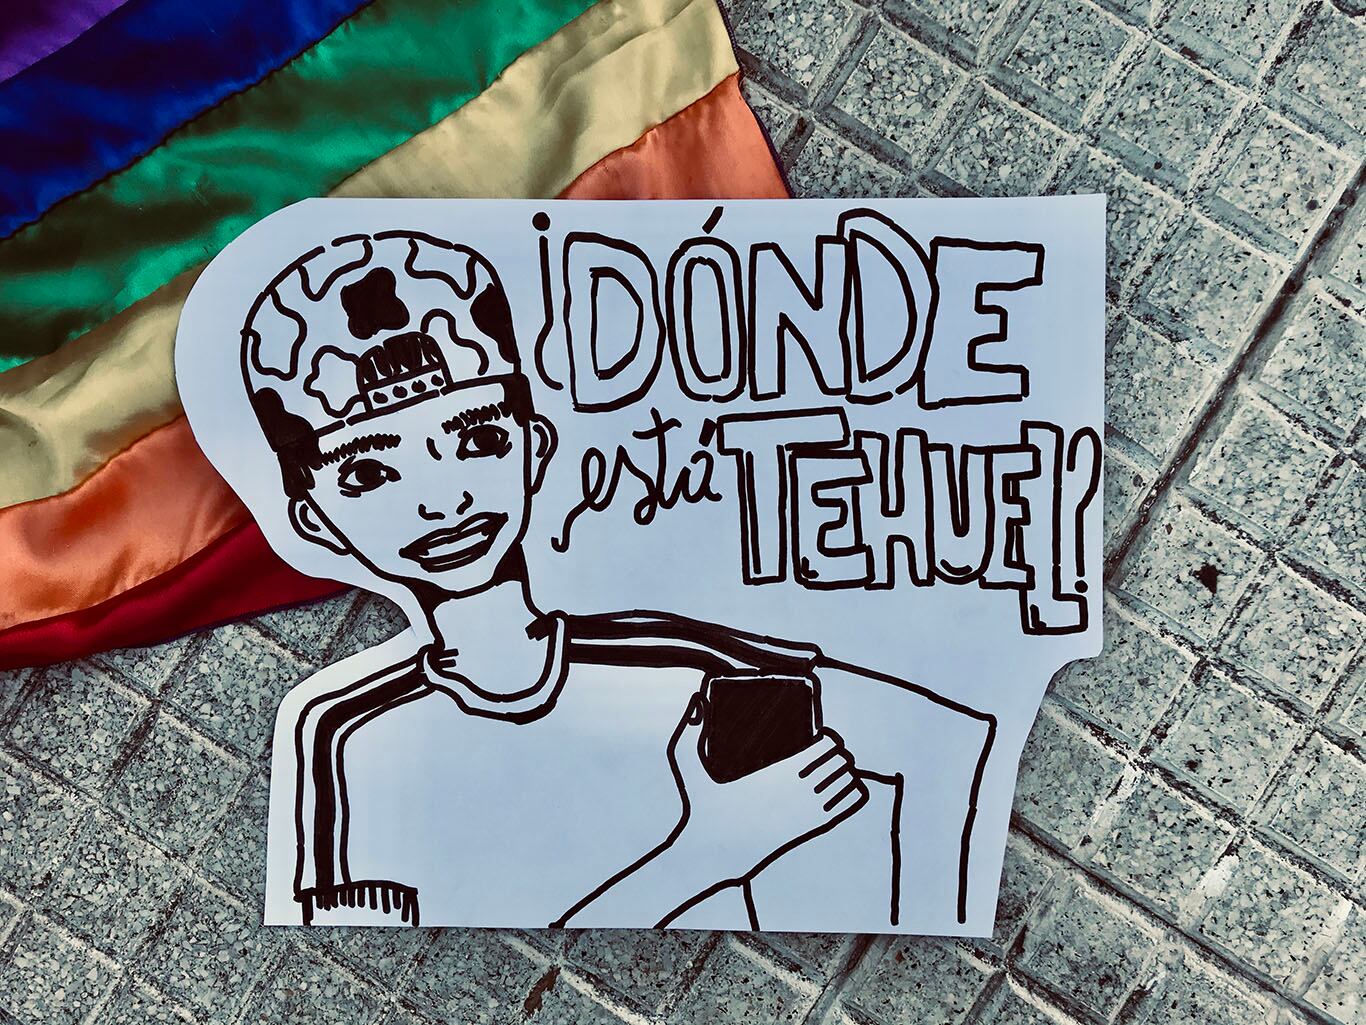 ¿DÓNDE
está TEHUEL?